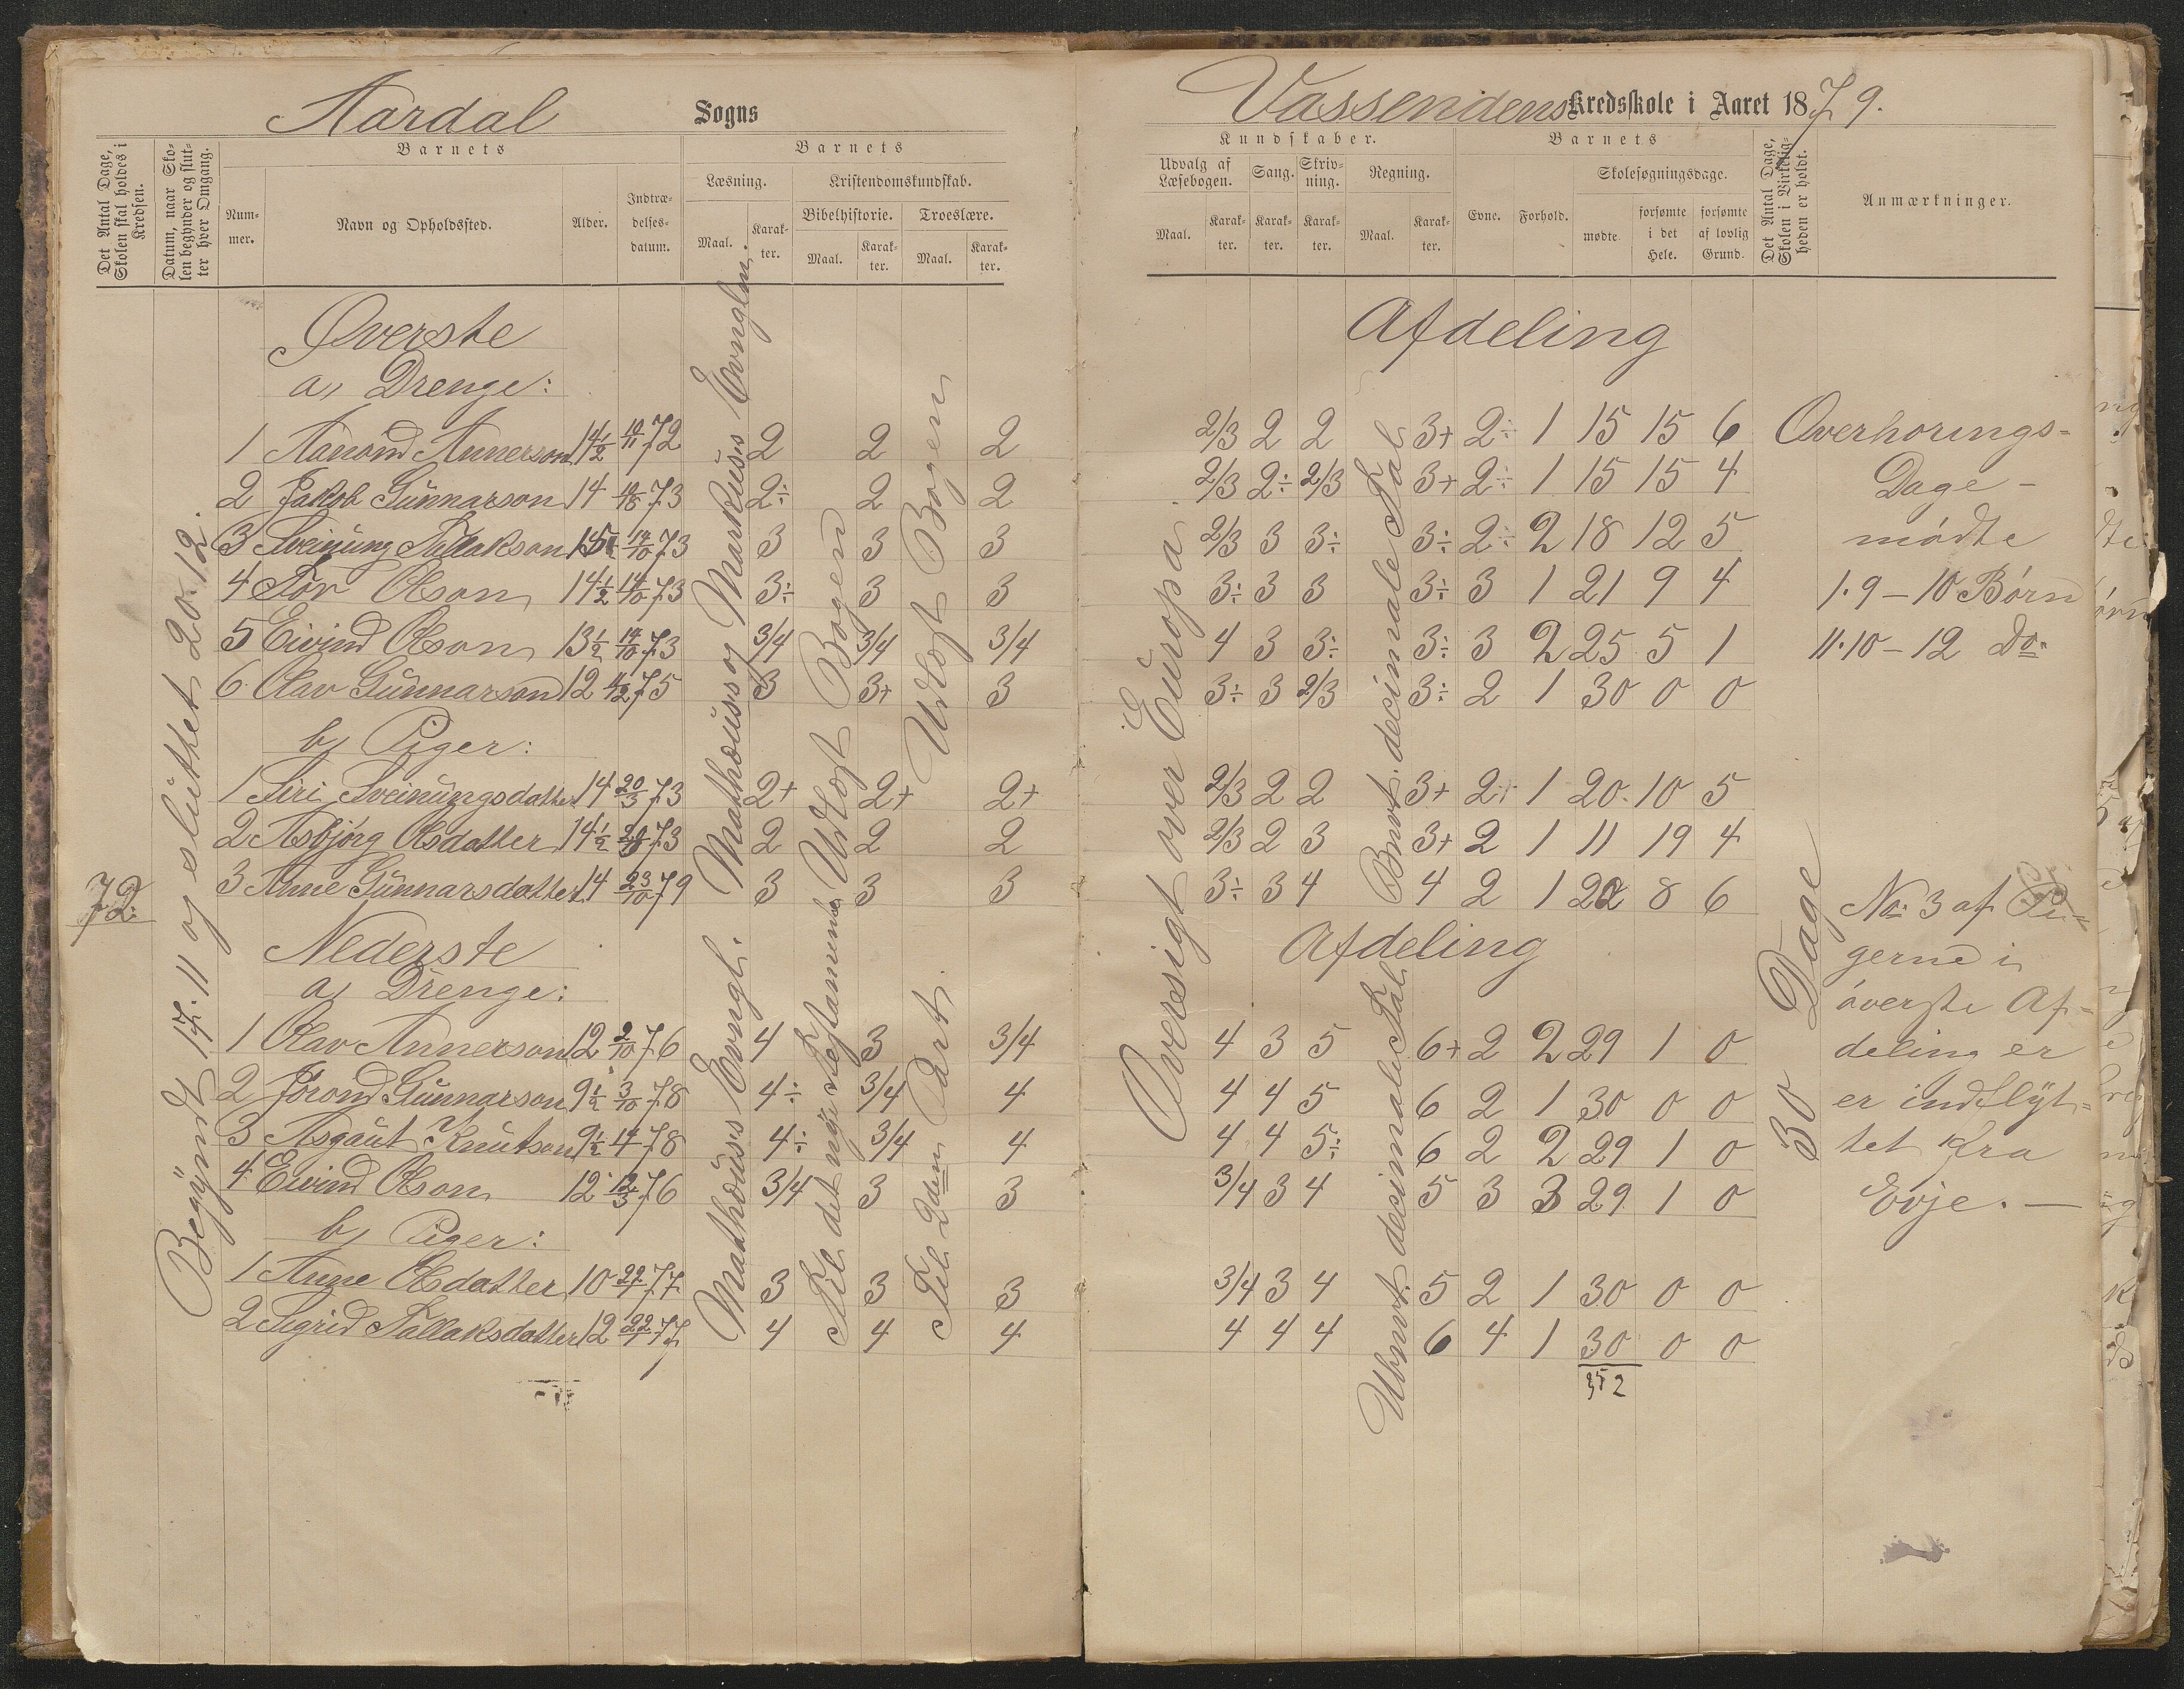 Aardal Sogns
Det Antal Dage, Skolen skal holdes i Kredsen.
Datum, naar Skolen begynder og slutter hver Omgang.
Barnets
Nummer.
Navn og Opholdssted.
Alder.
Indtrædelsesdatum.
Barnets
Læsning.
Maal.
Karakter.
Kristendomskundskab.
Bibelhistorie.
Maal.
Karakter.
Troeslære.
Maal.
Karakter.
72
Begyndt 17.11 og sluttet 20.12.
Øverste
a, Drenge:
1 Aanond Annerson 14½ 19/11 72 2 2 2
2 Jakob Gunnarson 14 73 2÷ 2 2
3 Sveinung Tallakson 15 14/10 73 3 3 3
4 Tor Olson 14½ 14/10 73 3÷ 3 3
5 Eivind Olson 13½ 14/10 73 3/4 3/4 3/4
6 Olav Gunnarson 12 4/12 75 3 3+ 3
b, Piger:
1 Siri Sveinungsdatter 14 20/3 73 2+ 2+ 2+
2 Asbjørg Olsdatter 14½ 73 2 2 2
3 Anne Gunnarsdatter 14 23/10 79 3 3 3
Mathæus og Markus's Evnglm.
Udlagt Bogen
Udlagt Bogen
Nederste
a, Drenge:
1 Olav Annerson 12 2/10 76 4 3 3/4
2 Jørond Gunnarson 9½ 3/10 78 4÷ 3/4 4
3 Asgaut Knutson 9½ 78 4÷ 3/4 4
4 Eivind Olson 12 12/3 76 3/4 3 3
b, Piger:
1 Anne Olsdatter 10 77 3 3 3
2 Sigrid Tallaksdatter 12 77 4 4 4
Mathæus's Evngl.
Til det nye Testamente
Til 2den Part.
Vassendens Kredsskole i Aaret 1879.
Kundskaber.
Udvalg af Læsebogen.
Maal.
Karakter.
Sang.
Karakter.
Skrivning.
Karakter.
Regning.
Maal.
Karakter.
Barnets
Evne.
Forhold.
Skolesøgningsdage.
mødte
forsømte i det Hele.
forsømte af lovlig Grund.
Det Antal Dage, Skolen i Virkeligheden er holdt.
Anmærkninger.
Afdeling
2/3 2 2 3+ 2÷ 1 15 15 6
2/3 2÷ 2/3 3+ 2÷ 1 15 15 4
2/3 3 3÷ 3÷ 2÷ 2 18 12 5
3÷ 3 3 3÷ 3 1 21 9 4
4 3 3÷ 3÷ 3 2 25 5 1
3÷ 3 2/3 3÷ 2 1 30 0 0
2/3 2 2 3+ 2+ 1 20 10 5
2/3 2 3 3+ 2 1 11 19 4
3÷ 3 4 4 2 1 22 8 6
Oversigt over Europa.
Bnvt. decimale Tal
Afdeling
4 3 5 6+ 2 2 29 1 0
4 4 5 6 2 1 30 0 0
4 4 5÷ 6 2 2 29 1 0
3/4 3 4 5 3 3 29 1 0
3/4 3 4 5 2 1 30 0 0
4 4 4 6 4 1 30 0 0
352
Ubnvt. decimale Tal
30 Dage
Overhørings-
Dage -
mødte
1. 9 – 10 Børn
11. 10 – 12 Do.
No. 3 af Pi-
gerne i
øverste Af-
deling er
er indflyt-
tet fra
Evje. —